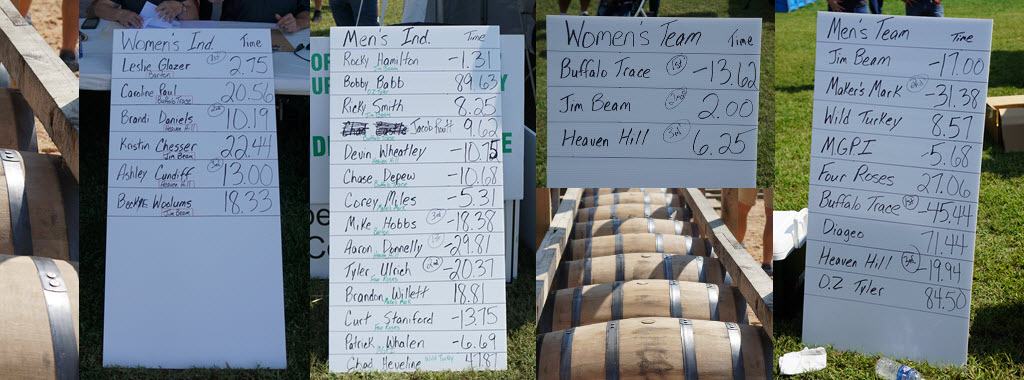 Women's Ind. Time
Leslie Glazer 1st 2.75
Barton
Caroline Paul 20.56
Buffalo Trace
Brandi Daniels 2nd 10.19
Heaven Hill
Kristin Chesser 22.44
Jim Beam
Ashley Cundiff 3rd 13.00
Heaven Hill
Beckye Woolums 18.33
Jim Beam
Men's Ind. Time
Rocky Hamilton -1.31
Jim Beam
Bobby Babb 89.63
O.Z. Tyler
Ricky Smith 8.25
Jim Beam
Jacob Routt 9.62
Devin Wheatley -10.75
Heaven Hill
Chase Depew -10.68
Buffalo Trace
Corey Miles -5.31
Mike Hobbs 3rd -18.38
Aaron Donnelly 1st -29.81
Tyler Ulrich 2nd -20.37
Four Roses
Brandon Willett 18.81
Curt Staniford -13.75
Four Roses
Patrick Whalen -6.69
Chad Heveline Wild Turkey 47.87
Women's Team Time
Buffalo Trace 1st -13.62
Jim Beam 2nd 2.00
Heaven Hill 3rd 6.25
Men's Team Time
Jim Beam -17.00
Maker's Mark 2nd -31.38
Wild Turkey 8.57
MGPI -5.68
Four Roses 27.06
Buffalo Trace 1st -45.44
Diageo 71.44
Heaven Hill 3rd -19.94
O.Z Tyler 84.50